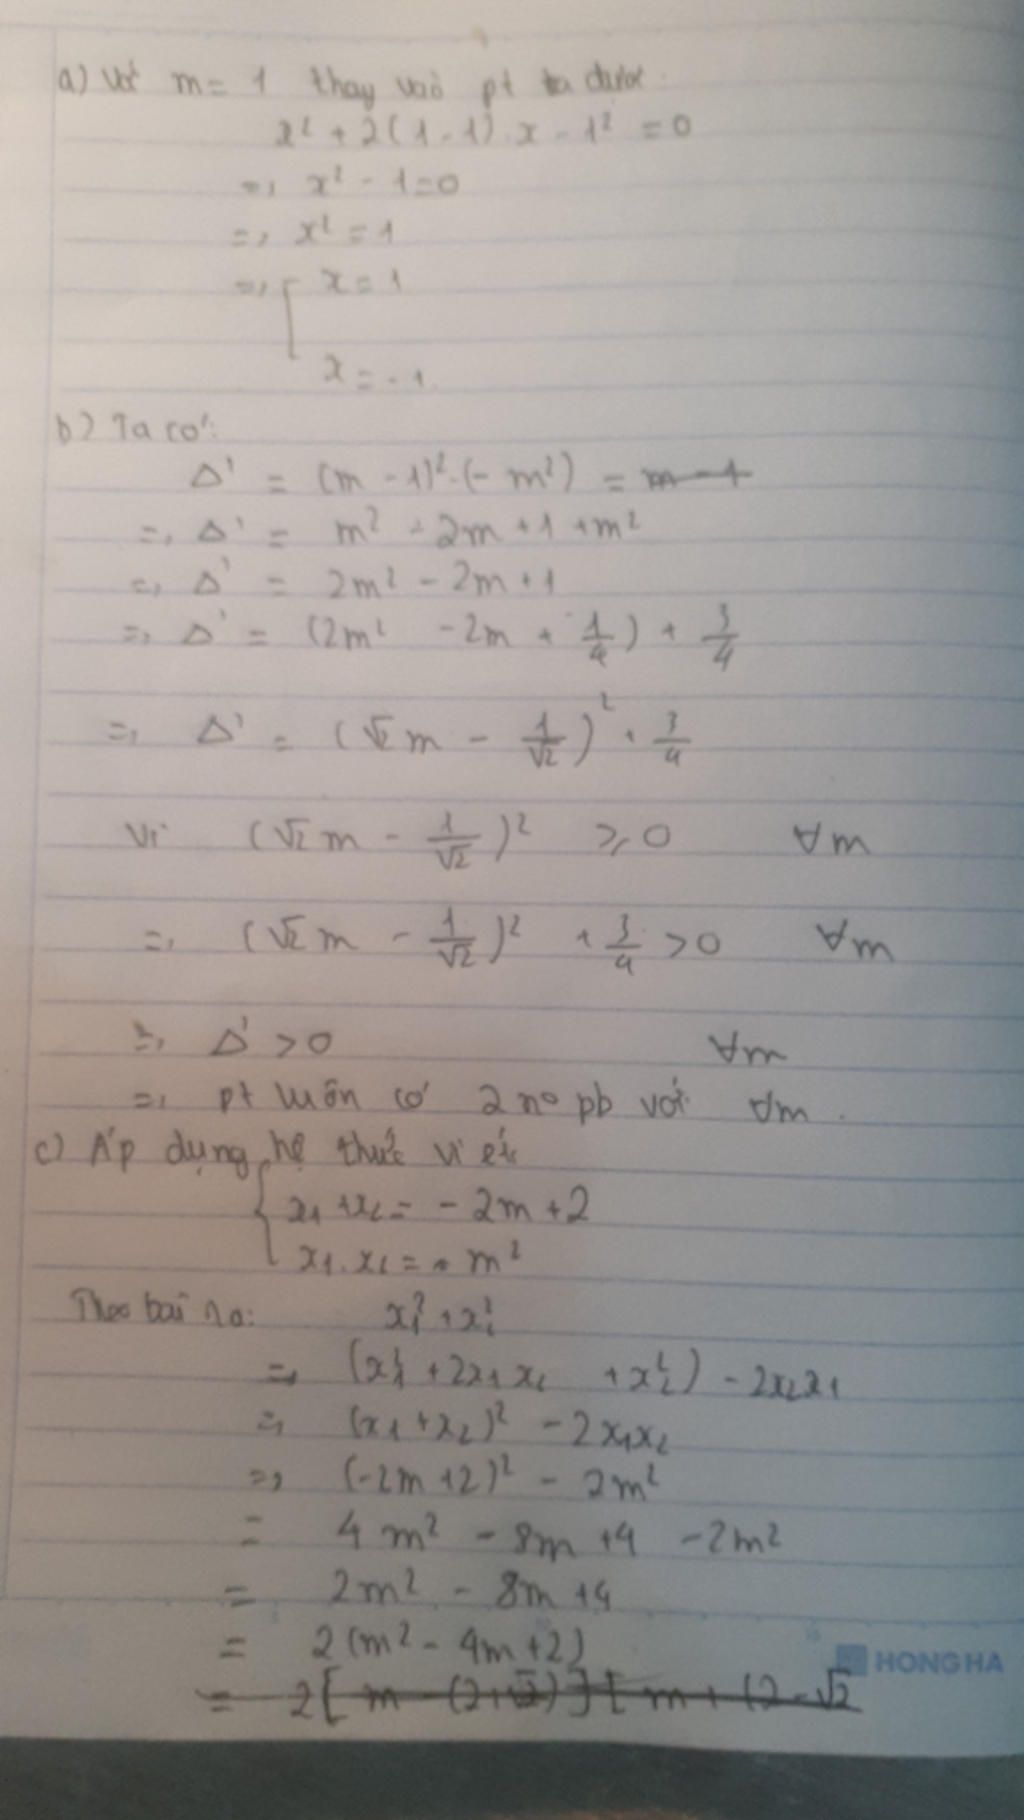 a) Với m = 1 thay vào pt ta được:
x² + 2(1-1).x - 1² = 0
=> x² - 1 = 0
=> x² = 1
=> [ x = 1
x = -1.
b) Ta có:
Δ' = (m - 1)² - (- m²) = m - 1
=> Δ' = m² - 2m + 1 + m²
=> Δ' = 2m² - 2m + 1
=> Δ' = (2m² - 2m + 1/4) + 3/4
=> Δ' = (√2 m - 1/√2)² + 3/4
Vì (√2 m - 1/√2)² ≥ 0 ∀m
=> (√2 m - 1/√2)² + 3/4 > 0 ∀m
=> Δ' > 0 ∀m
=> pt luôn có 2 n° pb với ∀m.
c) Áp dụng hệ thức vi ét:
{ x₁ + x₂ = - 2m + 2
x₁.x₂ = - m²
Theo bài ra: x₁² + x₂²
=> (x₁² + 2x₁x₂ + x₂²) - 2x₂x₁
=> (x₁ + x₂)² - 2x₁x₂
=> (-2m + 2)² - 2m²
= 4m² - 8m + 4 - 2m²
= 2m² - 8m + 4
= 2(m² - 4m + 2)
HONG HA
= 2[m - (2+√2)][m + (2 - √2